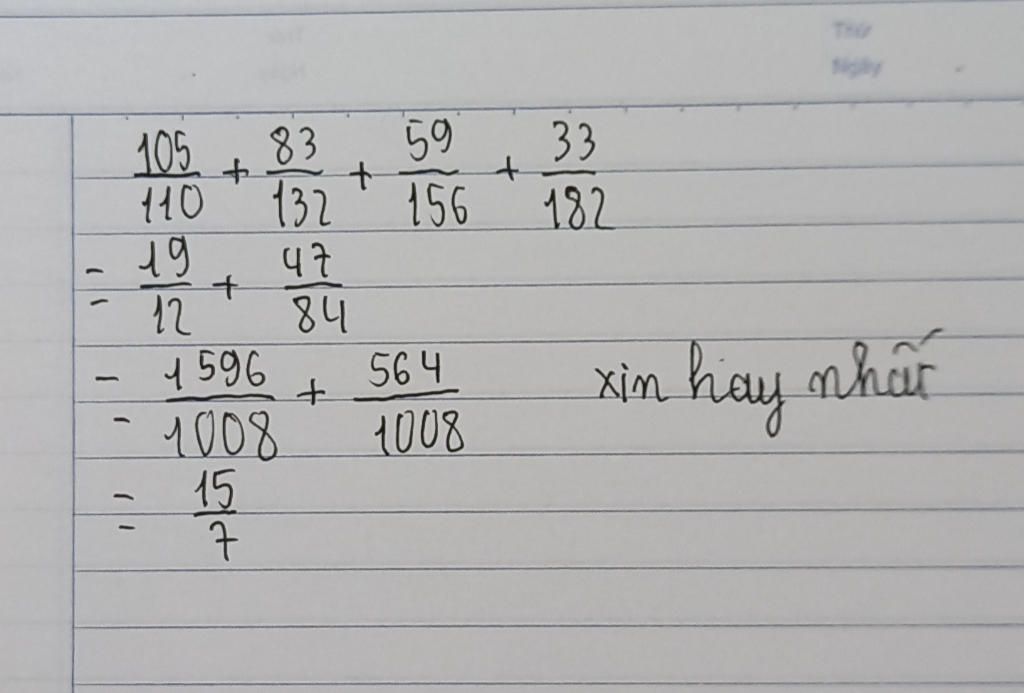 Thứ
Ngày
105/110 + 83/132 + 59/156 + 33/182
= 19/12 + 47/84
= 1596/1008 + 564/1008 xin hay nhất
= 15/7